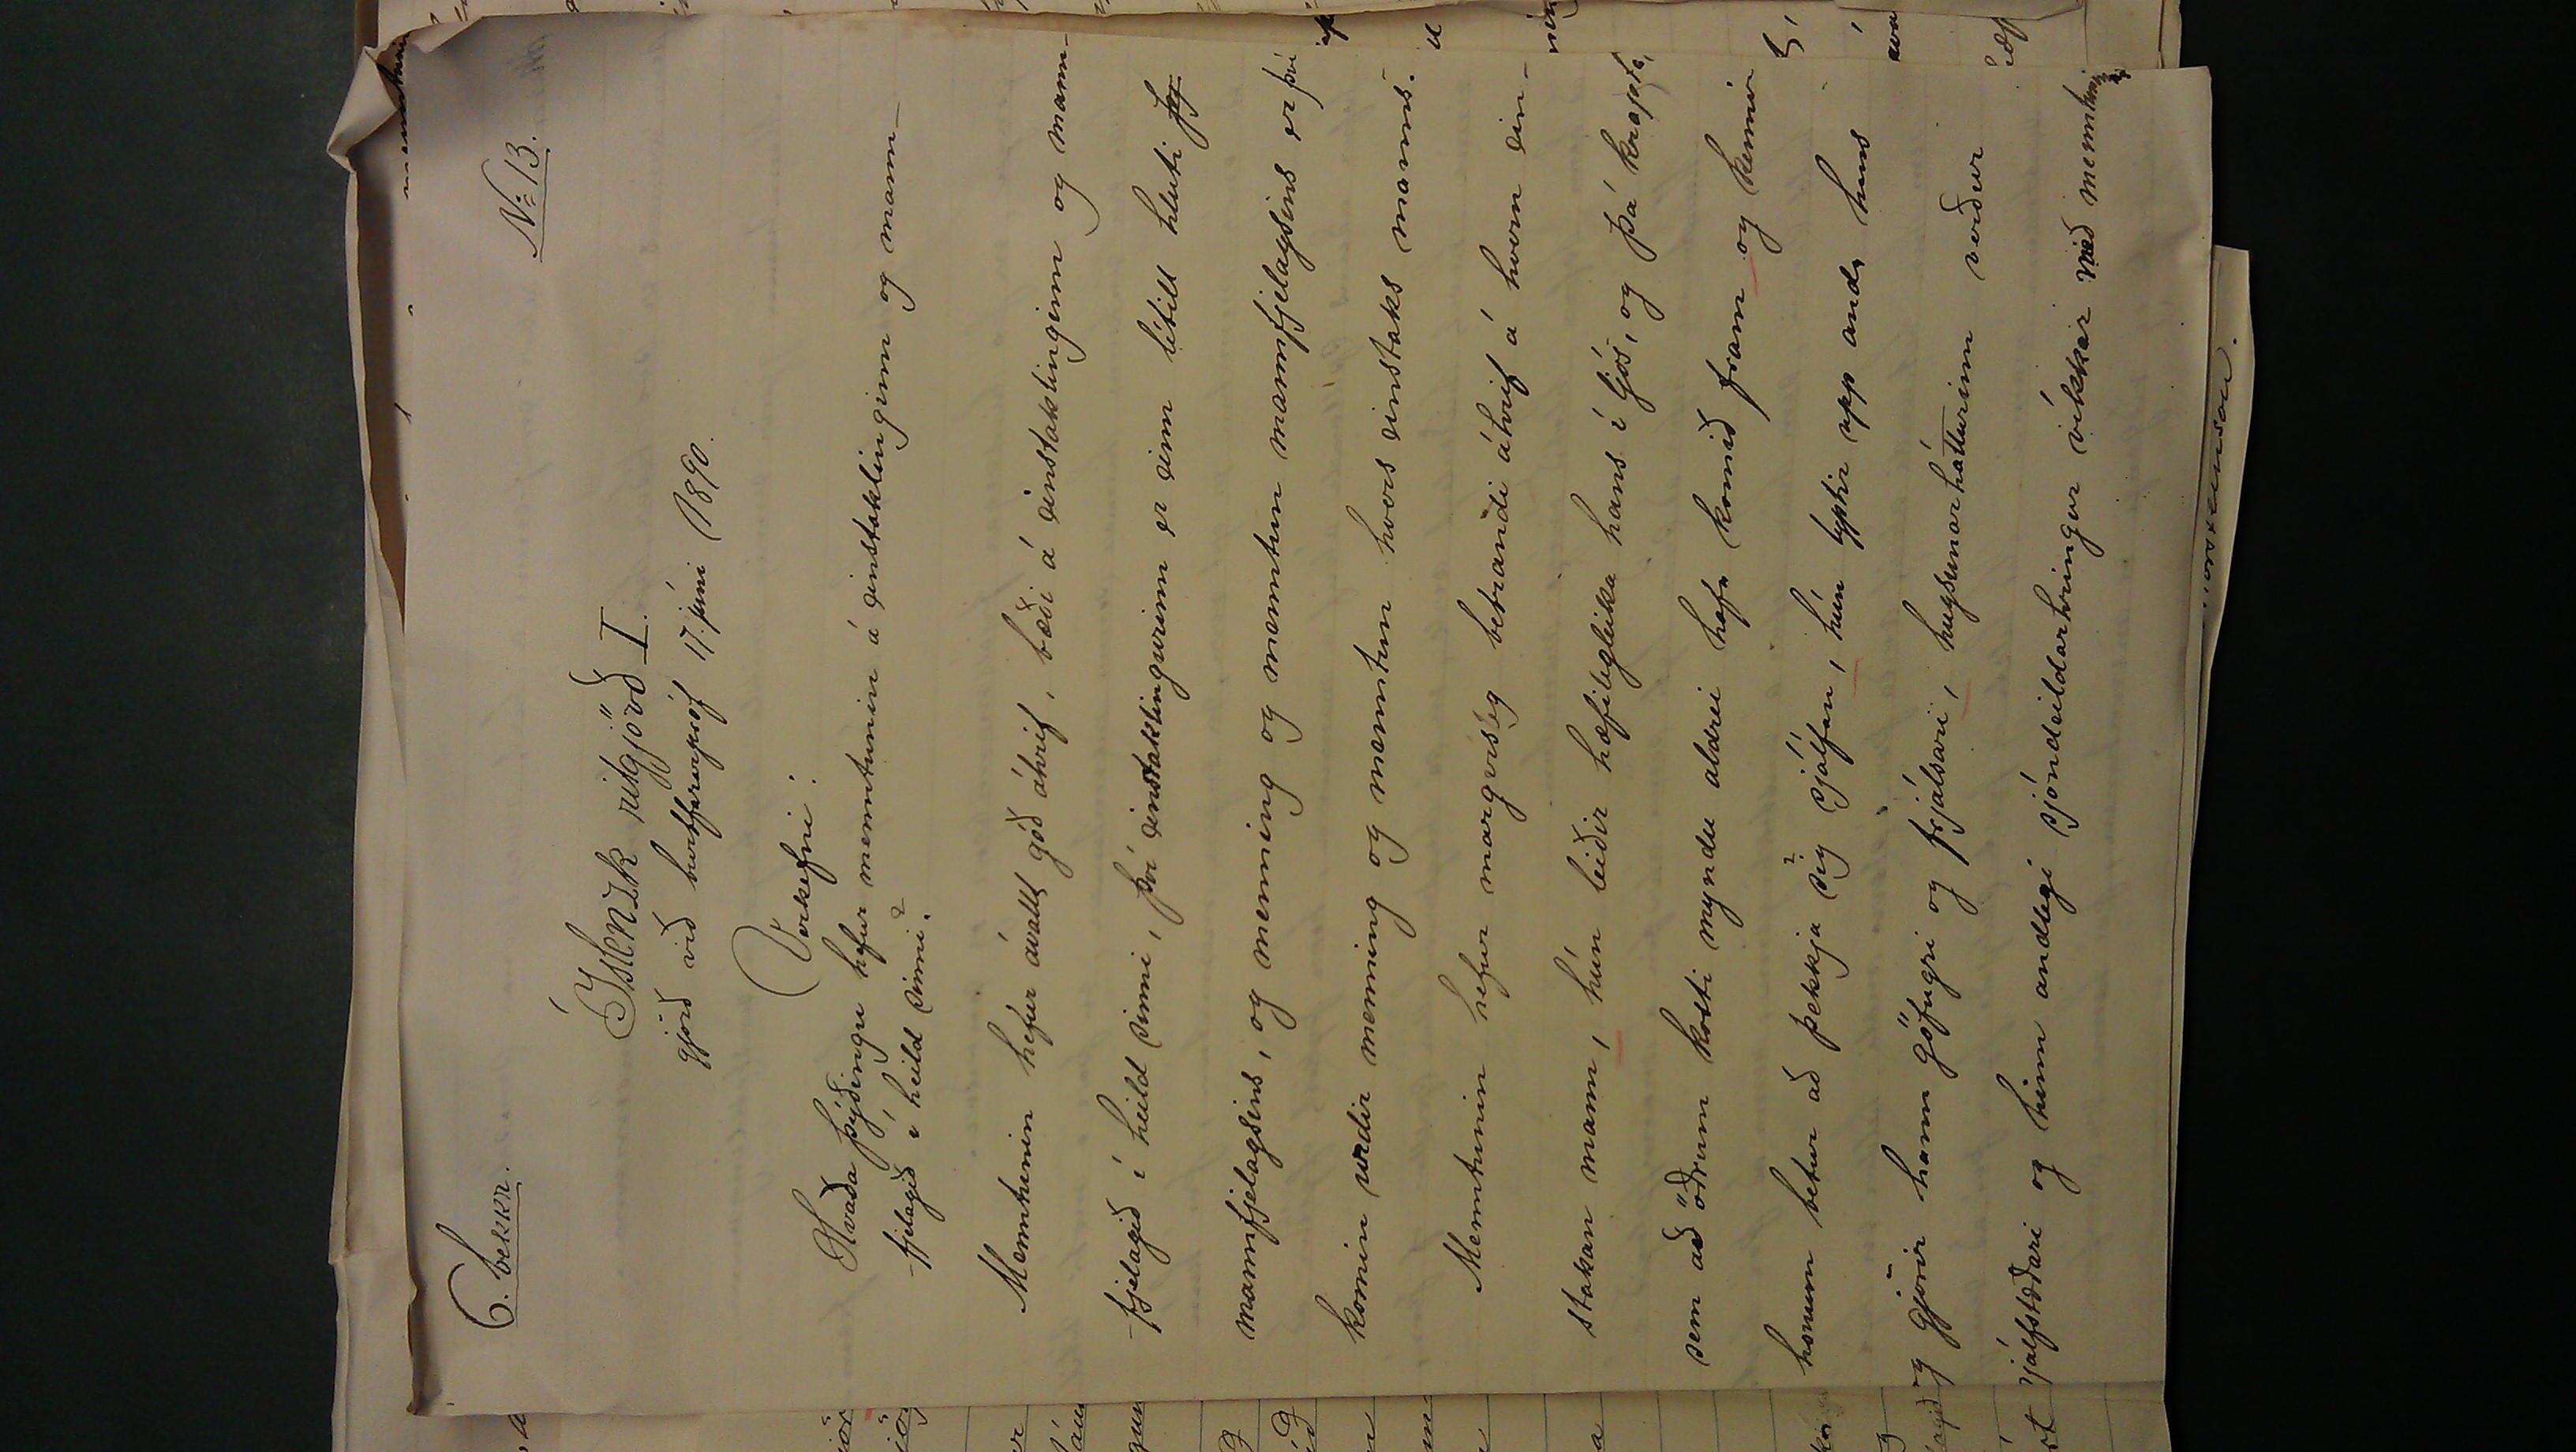 6. bekkr.
No 13.
Íslenzk ritgjörð I.
gjörð við burtfararpróf 17. júni 1890.
Verkefni:
Hvaða þýðingu hefur menntunin á einstaklinginn og mann-
fjelagið í heild sinni?
Menntunin hefur ávallt góð áhrif, bæði á einstaklinginn og mann-
fjelagið í heild sinni, því einstaklingurinn er einn lítill hluti
mannfjelagsins, og menning og menntun mannfjelagsins er því
komin undir menning og menntun hvers einstaks manns.
Menntunin hefur margvísleg betrandi áhrif á hvern ein-
stakan mann, hún leiðir hæfilegleika hans í ljós, og þá krapta,
sem að öðrum kosti myndu aldrei hafa komið fram og kennir
honum betur að þekkja sig sjálfan, hún lyptir upp anda hans
og gjörir hann göfugri og frjálsari, hugsunarhátturinn verður
sjálfstæðari og hinn andlegi sjóndeildarhringur víkkar með menntun-